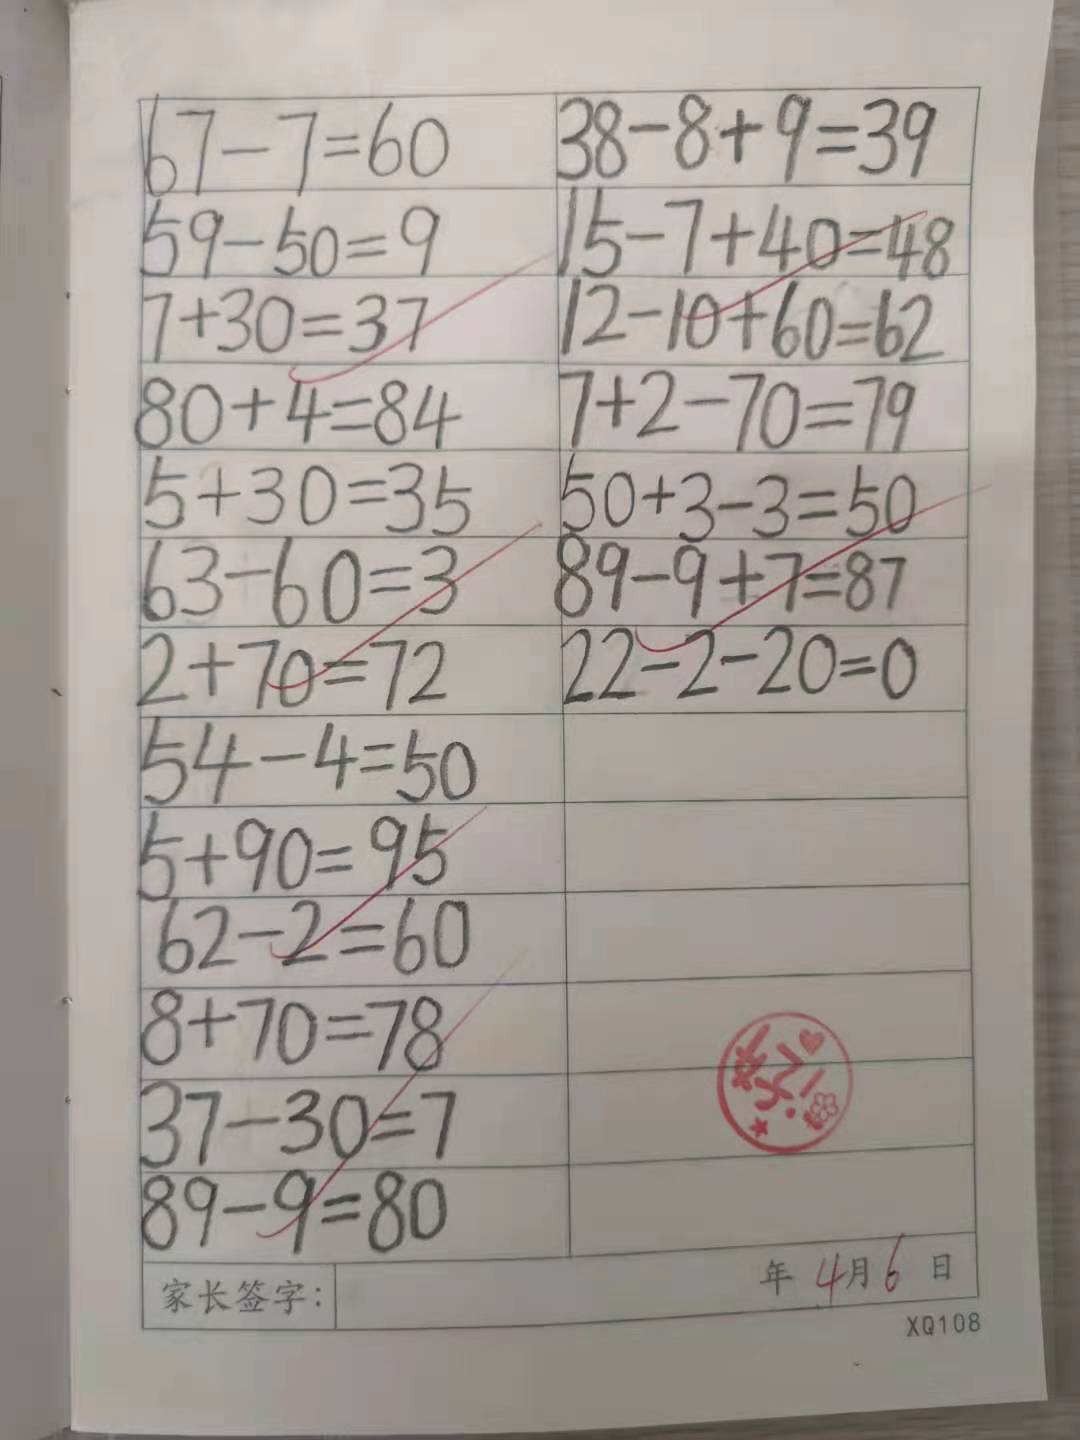 67-7=60
59-50=9
7+30=37
80+4=84
5+30=35
63-60=3
2+70=72
54-4=50
5+90=95
62-2=60
8+70=78
37-30=7
89-9=80
38-8+9=39
15-7+40=48
12-10+60=62
7+2-70=79
50+3-3=50
89-9+7=87
22-2-20=0
家长签字:
年 4月6日
XQ108